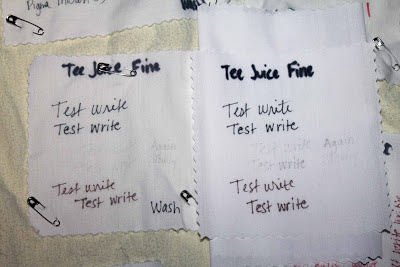 Tee Juice Fine
Test write
Test write
Test write Again
Test write
Test write
Test write
Wash
Tee Juice Fine
Test write
Test write
Test write Again
Test write
Test write
Test write